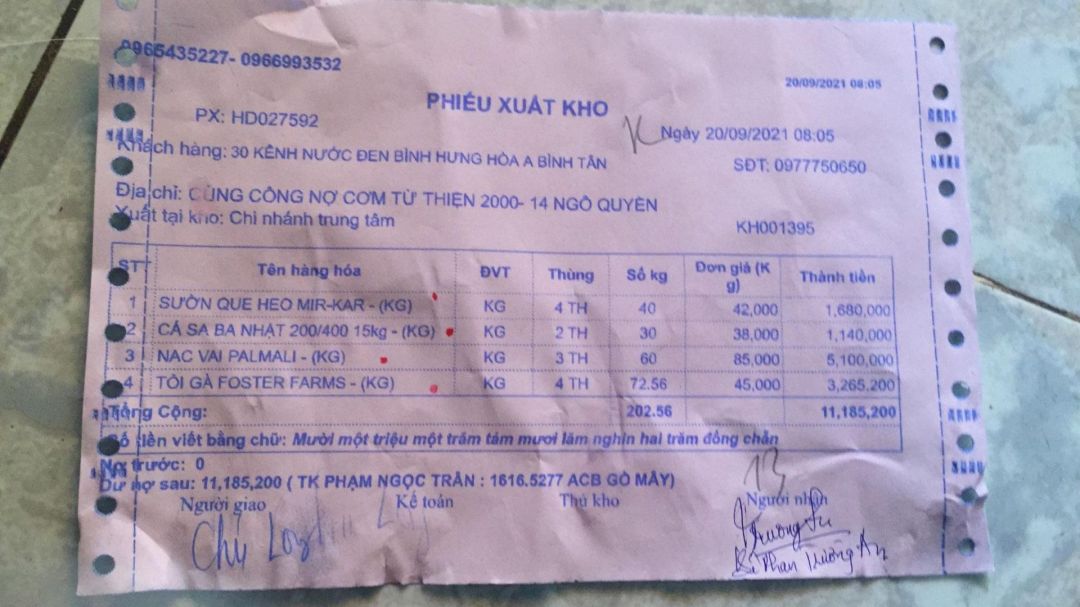 0965435227- 0966993532
20/09/2021 08:05
PHIẾU XUẤT KHO
PX: HD027592
Ngày 20/09/2021 08:05
Khách hàng: 30 KÊNH NƯỚC ĐEN BÌNH HƯNG HÒA A BÌNH TÂN
SĐT: 0977750650
Địa chỉ: CÙNG CÔNG NỢ CƠM TỪ THIỆN 2000- 14 NGÔ QUYỀN
Xuất tại kho: Chi nhánh trung tâm
KH001395
STT Tên hàng hóa ĐVT Thùng Số kg Đơn giá (Kg) Thành tiền
1 SƯỜN QUE HEO MIR-KAR - (KG) KG 4 TH 40 42,000 1,680,000
2 CÁ SA BA NHẬT 200/400 15kg - (KG) KG 2 TH 30 38,000 1,140,000
3 NẠC VAI PALMALI - (KG) KG 3 TH 60 85,000 5,100,000
4 TỎI GÀ FOSTER FARMS - (KG) KG 4 TH 72.56 45,000 3,265,200
Tổng Cộng: 202.56 11,185,200
Số tiền viết bằng chữ: Mười một triệu một trăm tám mươi lăm nghìn hai trăm đồng chẵn
Nợ trước: 0
Dư nợ sau: 11,185,200 ( TK PHẠM NGỌC TRÂN : 1616.5277 ACB GÒ MÂY)
Người giao Kế toán Thủ kho Người nhận
13
Phan Trường An